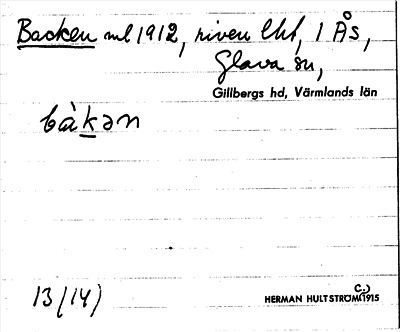 Backen ml 1912, riven lht, 1 Ås,
Glava sn,
Gillbergs hd, Värmlands län
bàkən
13/(14)
C.)
HERMAN HULTSTRÖM 1915